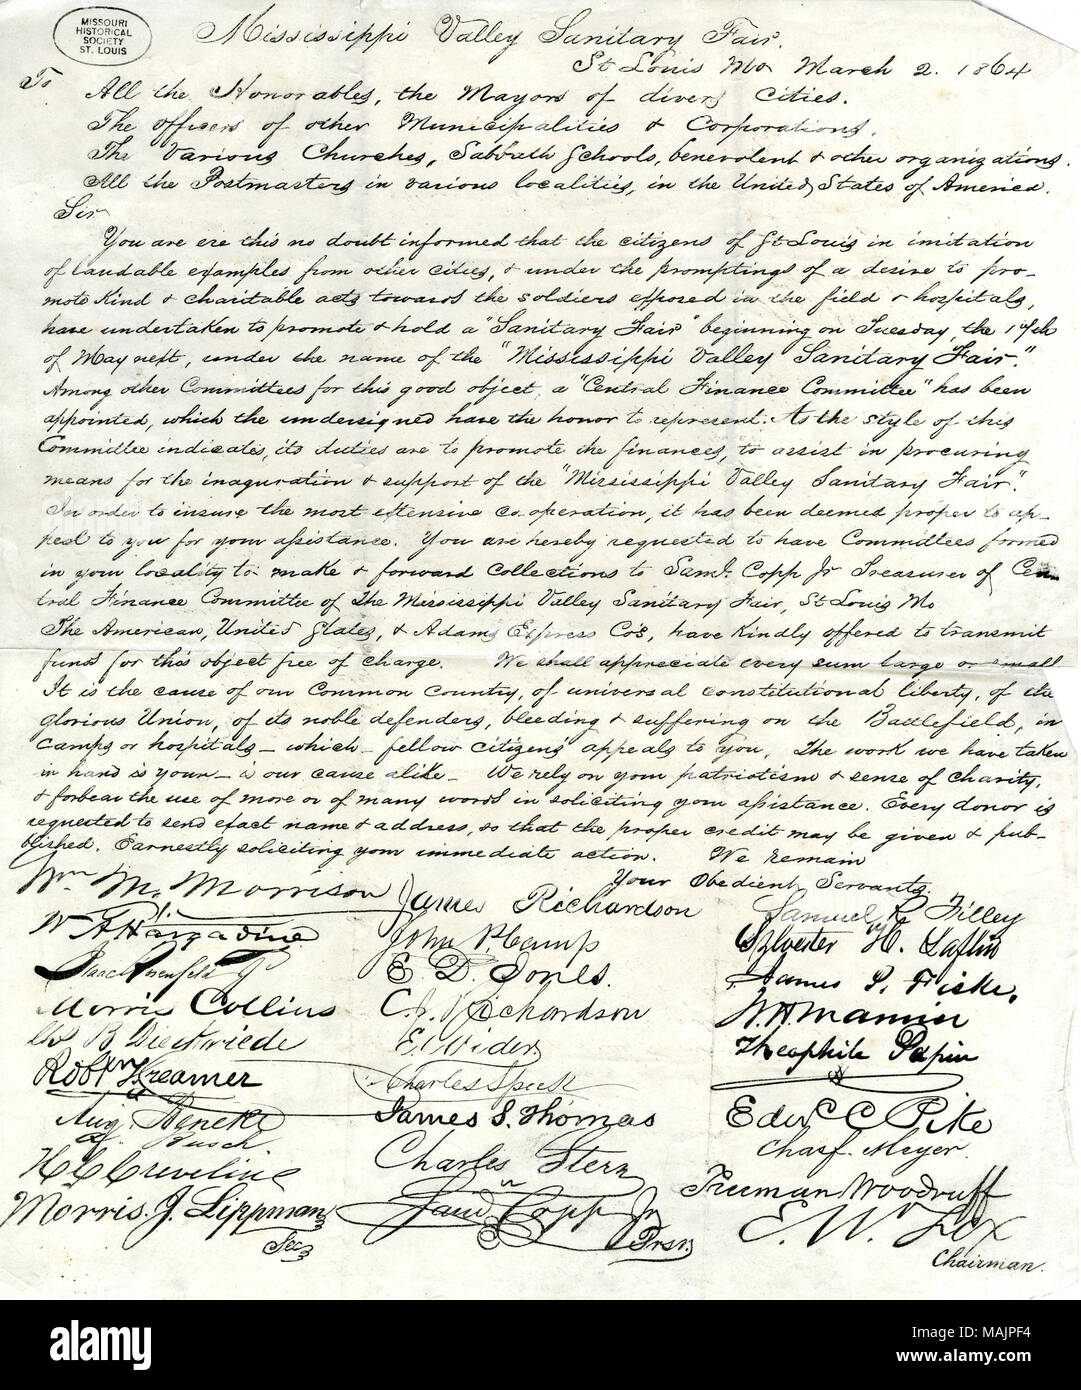 MISSOURI
HISTORICAL
SOCIETY
ST. LOUIS
Mississippi Valley Sanitary Fair.
St Louis Mo March 2. 1864
To
All the Honorables, the Mayors of divers Cities.
The officers of other Municipalities & Corporations.
The Various Churches, Sabbath Schools, benevolent & other organizations.
All the Postmasters in various localities, in the United States of America.
Sir
You are ere this no doubt informed that the citizens of St Louis in imitation
of laudable examples from other cities, & under the promptings of a desire to pro-
mote kind & charitable acts towards the soldiers exposed in the field & hospitals,
have undertaken to promote & hold a "Sanitary Fair" beginning on Tuesday the 17th
of May next, under the name of the "Mississippi Valley Sanitary Fair."
Among other Committees for this good object, a "Central Finance Committee" has been
appointed, which the undersigned have the honor to represent. As the style of this
Committee indicates, its duties are to promote the finances, to assist in procuring
means for the inaguration & support of the "Mississippi Valley Sanitary Fair".
In order to insure the most extensive co.operation, it has been deemed proper to ap-
peal to you for your assistance. You are hereby requested to have Committees formed
in your locality to make & forward collections to Saml. Copp Jr Treasurer of Cen
tral Finance Committee of The Mississippi Valley Sanitary Fair, St Louis Mo
The American, United States, & Adams Express Co's, have kindly offered to transmit
funds for this object free of charge. We shall appreciate every sum large or small
It is the cause of our Common Country, of universal constitutional liberty, of the
glorious Union, of its noble defenders, bleeding & suffering on the Battlefield, in
camps or hospitals - which - fellow citizens appeals to you. The work we have taken
in hand is your - is our cause alike - We rely on your patriotism & sense of charity,
& forbear the use of more or of many words in soliciting your assistance. Every donor is
requested to send exact name & address, so that the proper credit may be given & pub-
lished. Earnestly soliciting your immediate action. We remain
Your Obedient Servants.
Wm M. Morrison James Richardson Samuel R Filley
W A Hargadine John P Camp Sylvester H. Laflin
Isaac Rosenfeld Jr E. D. Jones. James P. Fiske,
Morris Collins C. J. Richardson
B Dieckriede E. Wider Theophile Papin
Robt Kreamer Charles Speck
Aug Heneke James S. Thomas Edw C Pike
Busch Chas F. Meyer
H C Creveling Charles Stern Freeman Woodruff
Morris. J. Lippman Saml Copp Jr E. W. Fox
Secy Trsr. Chairman.
alamy
Image ID: MAJPF4
www.alamy.com